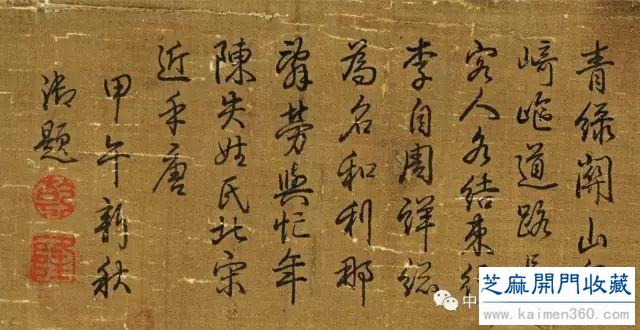 青綠關山
崎嶇道路
客人各結束行
李自周詳總
為名和利那
辭勞與忙年
陳失姓氏北宋
近乎唐
甲午新秋
御題
乾
隆
中
芝麻開門收藏
www.kaimen360.com